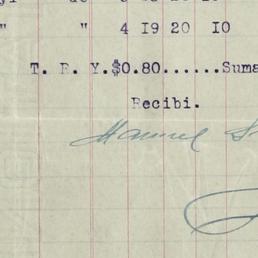 " " 4 19 20 10
T. R. Y.$0.80......Suma
Recibi.
Manuel